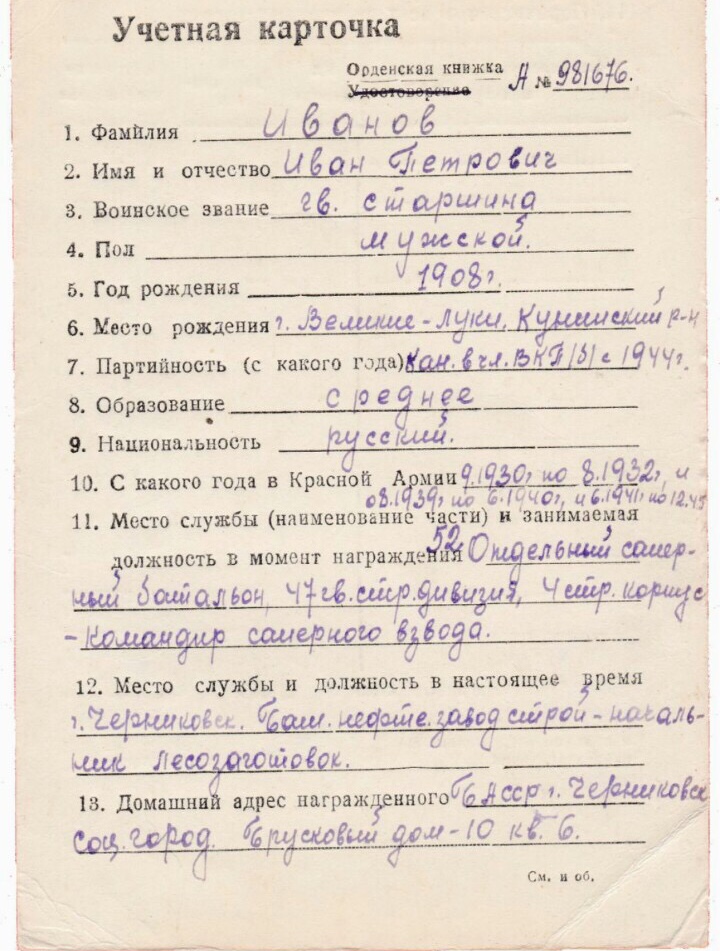 Учетная карточка
Орденская книжка
Удостоверение А № 981676.
1. Фамилия Иванов
2. Имя и отчество Иван Петрович
3. Воинское звание гв. старшина
4. Пол мужской.
5. Год рождения 1908г.
6. Место рождения г. Великие-Луки, Куньинский р-н
7. Партийность (с какого года) Кан. в чл. ВКП/б/ с 1944г.
8. Образование среднее
9. Национальность русский.
10. С какого года в Красной Армии 9.1930г по 8.1932г, и
с 8.1939г по 6.1940г, и 6.1941г по 12.45
11. Место службы (наименование части) и занимаемая
должность в момент награждения 52 Отдельный сапер-
ный батальон, 47 гв. стр. дивизия, 4 стр. корпус
- командир саперного взвода.
12. Место службы и должность в настоящее время
г. Черниковск. Баш. нефте. завод строй - началь-
ник лесозаготовок.
13. Домашний адрес награжденного БАССР г. Черниковск
Соц. город. Брусковый дом - 10 кв. 6.
См. и об.